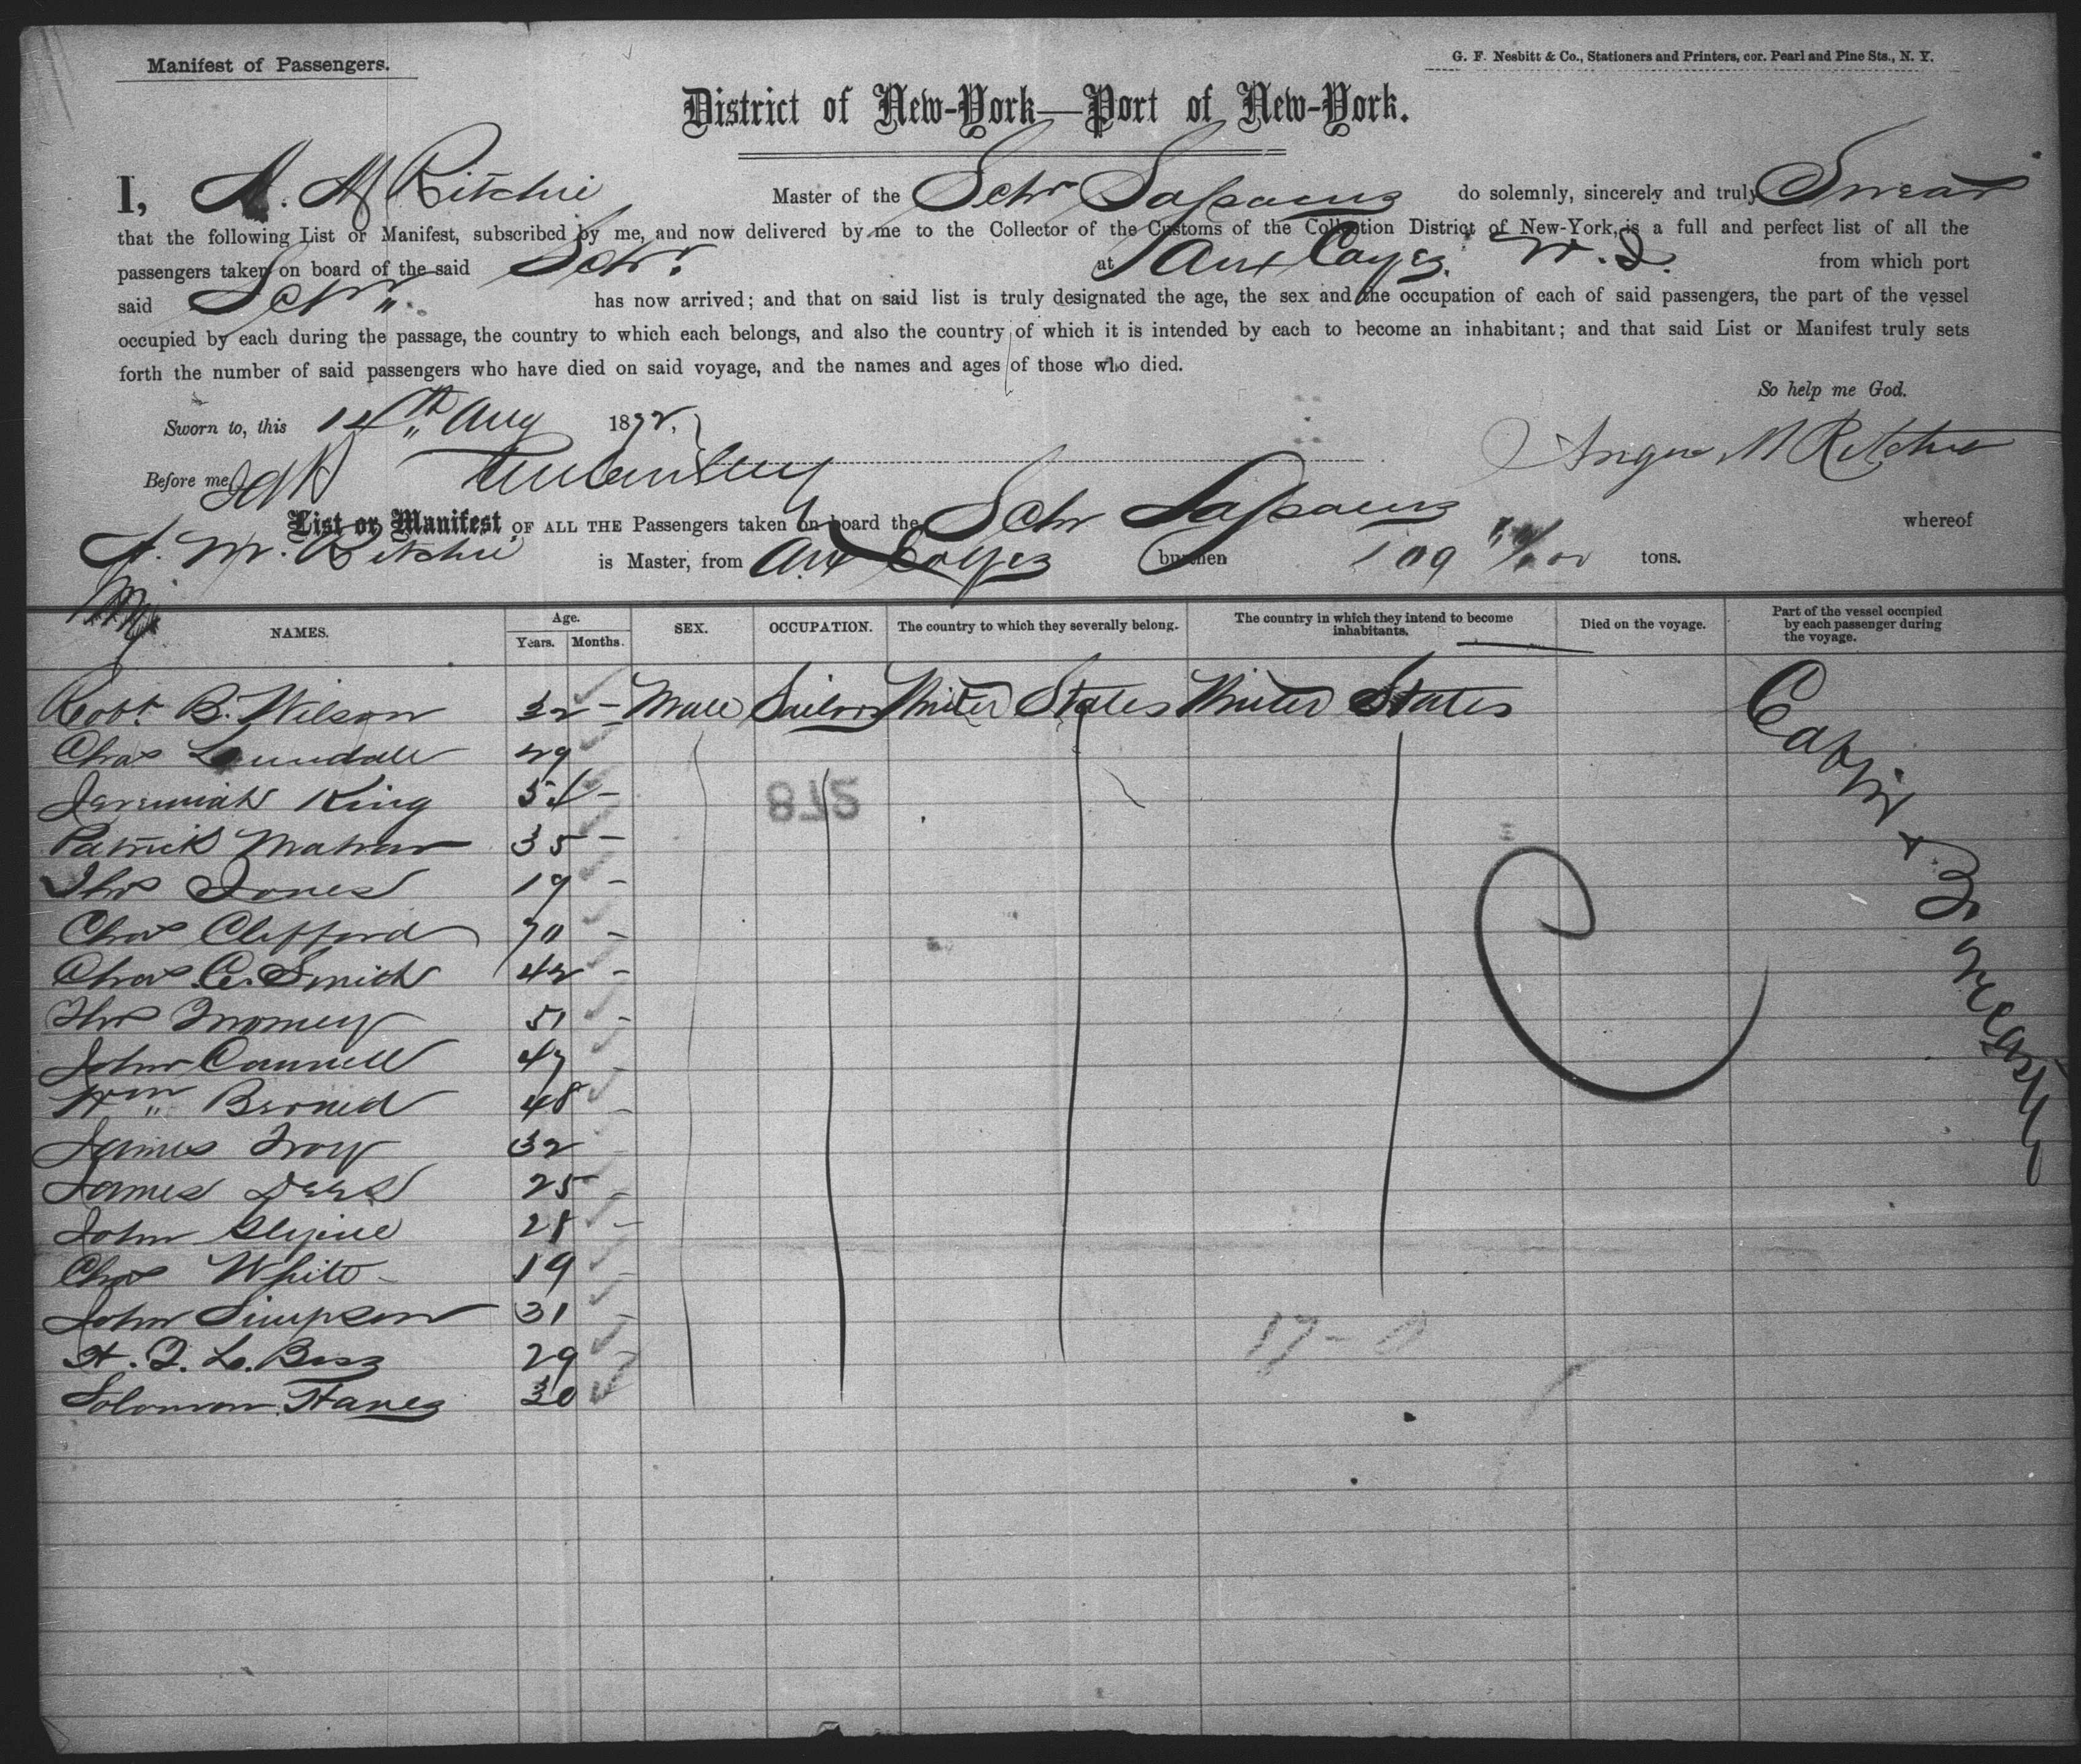 Manifest of Passengers.
G. F. Nesbitt & Co., Stationers and Printers, cor. Pearl and Pine Sts., N. Y.
District of New-York—Port of New-York.
I, A. M Ritchie Master of the Schr do solemnly, sincerely and truly Swear
that the following List or Manifest, subscribed by me, and now delivered by me to the Collector of the Customs of the Collection District of New-York, is a full and perfect list of all the
passengers taken on board of the said Schr. at Aux Cayes. W. I. from which port
said Schr. has now arrived; and that on said list is truly designated the age, the sex and the occupation of each of said passengers, the part of the vessel
occupied by each during the passage, the country to which each belongs, and also the country of which it is intended by each to become an inhabitant; and that said List or Manifest truly sets
forth the number of said passengers who have died on said voyage, and the names and ages of those who died.
So help me God.
Sworn to, this 14th Aug 1872,
Angus M Ritchie
Before me,
List or Manifest OF ALL THE Passengers taken on board the Schr whereof
A. M. Ritchie is Master, from Aux Cayes burthen 109 tons.
NAMES. Age. Years. Months. SEX. OCCUPATION. The country to which they severally belong. The country in which they intend to become inhabitants. Died on the voyage. Part of the vessel occupied by each passenger during the voyage.
Robt B. Wilson 32 - Male Sailors United States United States
Chas 29
Jeremiah King 51 -
Patrick Mahar 35 -
Thos Jones 19 -
Chas Clifford 70 -
Chas C. Smith 42 -
Thos Twomey 51 -
John Connell 47 -
Wm Bernard 48 -
James Troy 32 -
James Dees 25 -
John 28 -
Chas White 19 -
John Simpson 31 -
H. 29 -
Solomon Hanes 30
Cabin &
218
17 -